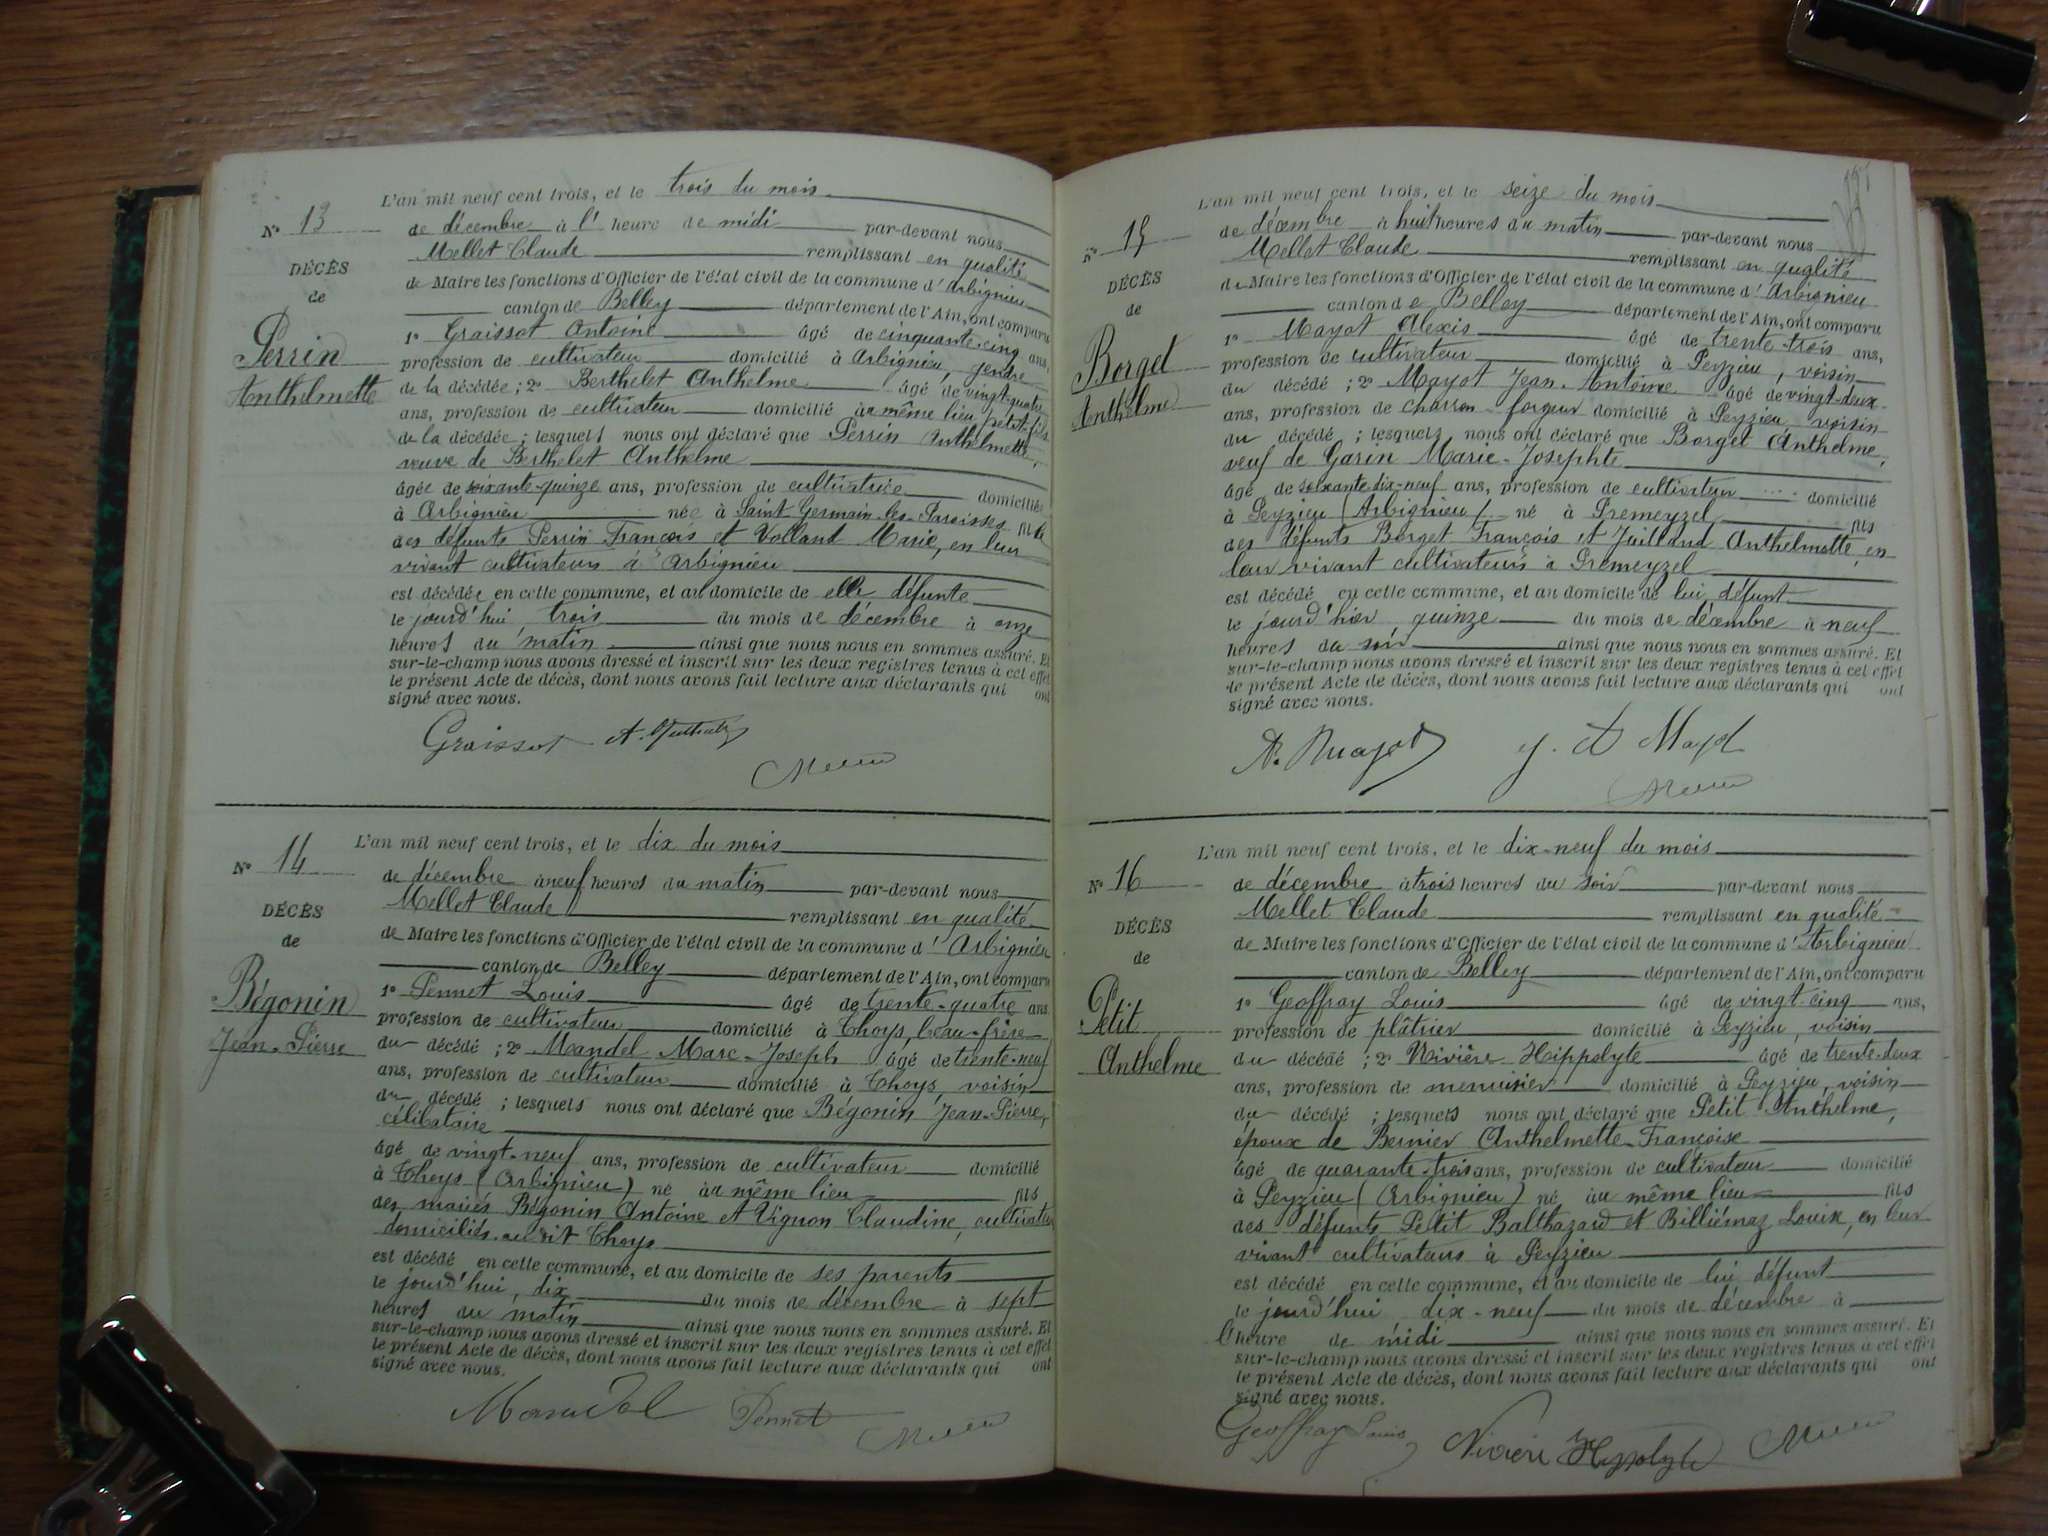 L'an mil neuf cent trois, et le trois du mois
N° 13
de décembre à l' heure de midi par-devant nous
Mellet Claude remplissant en qualité
DÉCÈS
de Maire les fonctions d'Officier de l'état civil de la commune d'Arbignieu
de
canton de Belley département de l'Ain, ont comparu
Perrin
Anthelmette
1° Graissot Antoine âgé de cinquante-cinq ans,
profession de cultivateur domicilié à Arbignieu, gendre
de la décédée ; 2° Berthelet Anthelme âgé de vingt-quatre
ans, profession de cultivateur domicilié au même lieu, petit-fils
de la décédée ; lesquels nous ont déclaré que Perrin Anthelmette,
veuve de Berthelet Anthelme
âgée de soixante-quinze ans, profession de cultivatrice domiciliée
à Arbignieu née à Saint Germain-les-Paroisses fille
des défunts Perrin François et Volland Marie, en leur
vivant cultivateurs à Arbignieu
est décédée en cette commune, et au domicile de elle défunte
le jourd'hui trois du mois de décembre à onze
heures du matin ainsi que nous nous en sommes assuré. Et
sur-le-champ nous avons dressé et inscrit sur les deux registres tenus à cet effet
le présent Acte de décès, dont nous avons fait lecture aux déclarants qui ont
signé avec nous.
Graissot
N° 14
L'an mil neuf cent trois, et le dix du mois
de décembre à neuf heures du matin par-devant nous
Mellet Claude remplissant en qualité
DÉCÈS
de Maire les fonctions d'Officier de l'état civil de la commune d'Arbignieu
de
canton de Belley département de l'Ain, ont comparu
Bégonin
Jean-Pierre
1° Pennet Louis âgé de trente-quatre ans
profession de cultivateur domicilié à Thoys, beau-frère
du décédé ; 2° Mandel Marc-Joseph âgé de trente-neuf
ans, profession de cultivateur domicilié à Thoys, voisin
du décédé ; lesquels nous ont déclaré que Bégonin Jean-Pierre,
célibataire
âgé de vingt-neuf ans, profession de cultivateur domicilié
à Thoys (Arbignieu) né au même lieu fils
des mariés Bégonin Antoine et Vignon Claudine, cultivateurs
domiciliés au dit Thoys
est décédé en cette commune, et au domicile de ses parents
le jourd'hui, dix du mois de décembre à sept
heures du matin ainsi que nous nous en sommes assuré. Et
sur-le-champ nous avons dressé et inscrit sur les deux registres tenus à cet effet
le présent Acte de décès, dont nous avons fait lecture aux déclarants qui ont
signé avec nous.
Mandel Pennet
L'an mil neuf cent trois, et le seize du mois
N° 15
de décembre à huit heures du matin par-devant nous
Mellet Claude remplissant en qualité
DÉCÈS
de Maire les fonctions d'Officier de l'état civil de la commune d'Arbignieu
de
canton de Belley département de l'Ain, ont comparu
Borget
Anthelme
1° Mayot Alexis âgé de trente-trois ans,
profession de cultivateur domicilié à Peyzieu, voisin
du décédé ; 2° Mayot Jean-Antoine âgé de vingt-deux
ans, profession de charron-forgeur domicilié à Peyzieu, voisin
du décédé ; lesquels nous ont déclaré que Borget Anthelme,
veuf de Garin Marie-Josephte
âgé de soixante-dix-neuf ans, profession de cultivateur domicilié
à Peyzieu (Arbignieu) né à Premeyzel fils
des défunts Borget François et Juilland Anthelmette, en
leur vivant cultivateurs à Premeyzel
est décédé en cette commune, et au domicile de lui défunt
le jourd'hier quinze du mois de décembre à neuf
heures du soir ainsi que nous nous en sommes assuré. Et
sur-le-champ nous avons dressé et inscrit sur les deux registres tenus à cet effet
le présent Acte de décès, dont nous avons fait lecture aux déclarants qui ont
signé avec nous.
A. Mayot J. A Mayot
L'an mil neuf cent trois, et le dix-neuf du mois
N° 16
de décembre à trois heures du soir par-devant nous
Mellet Claude remplissant en qualité
DÉCÈS
de Maire les fonctions d'Officier de l'état civil de la commune d'Arbignieu
de
canton de Belley département de l'Ain, ont comparu
Petit
Anthelme
1° Geoffray Louis âgé de vingt-cinq ans,
profession de plâtrier domicilié à Peyzieu, voisin
du décédé ; 2° Nivière Hippolyte âgé de trente-deux
ans, profession de menuisier domicilié à Peyzieu, voisin
du décédé ; lesquels nous ont déclaré que Petit Anthelme,
époux de Bernier Anthelmette-Françoise
âgé de quarante-trois ans, profession de cultivateur domicilié
à Peyzieu (Arbignieu) né au même lieu fils
des défunts Petit Balthazard et Billiémaz Louise, en leur
vivant cultivateurs à Peyzieu
est décédé en cette commune, et au domicile de lui défunt
le jourd'hui dix-neuf du mois de décembre à
l'heure de midi ainsi que nous nous en sommes assuré. Et
sur-le-champ nous avons dressé et inscrit sur les deux registres tenus à cet effet
le présent Acte de décès, dont nous avons fait lecture aux déclarants qui ont
signé avec nous.
Geoffray Louis Nivière Hippolyte